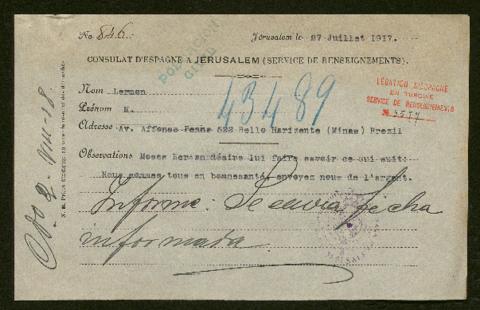 No 846.
Jérusalem le 27 Juillet 1917.
CONSULAT D'ESPAGNE A JÉRUSALEM (SERVICE DE RENSEIGNEMENTS).
Nom Lerman
43489
LÉGATION D'ESPAGNE
EN TURQUIE
SERVICE DE RENSEIGNEMENTS
Prénom M.
Adresse Av. Affonso Penna 522 Bello Horizente (Minas) Brezil
Observations Moses Lerman désire lui faire savoir ce qui suit:
Nous sommes tous en bonnesanté, envoyez nous de l'argent.
Informe: Se envia ficha
informada